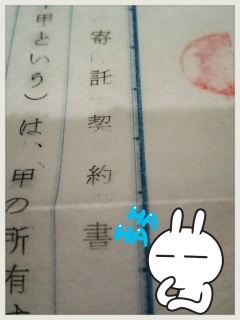 寄託契約書
甲という）は、甲
の所有
HA
HA